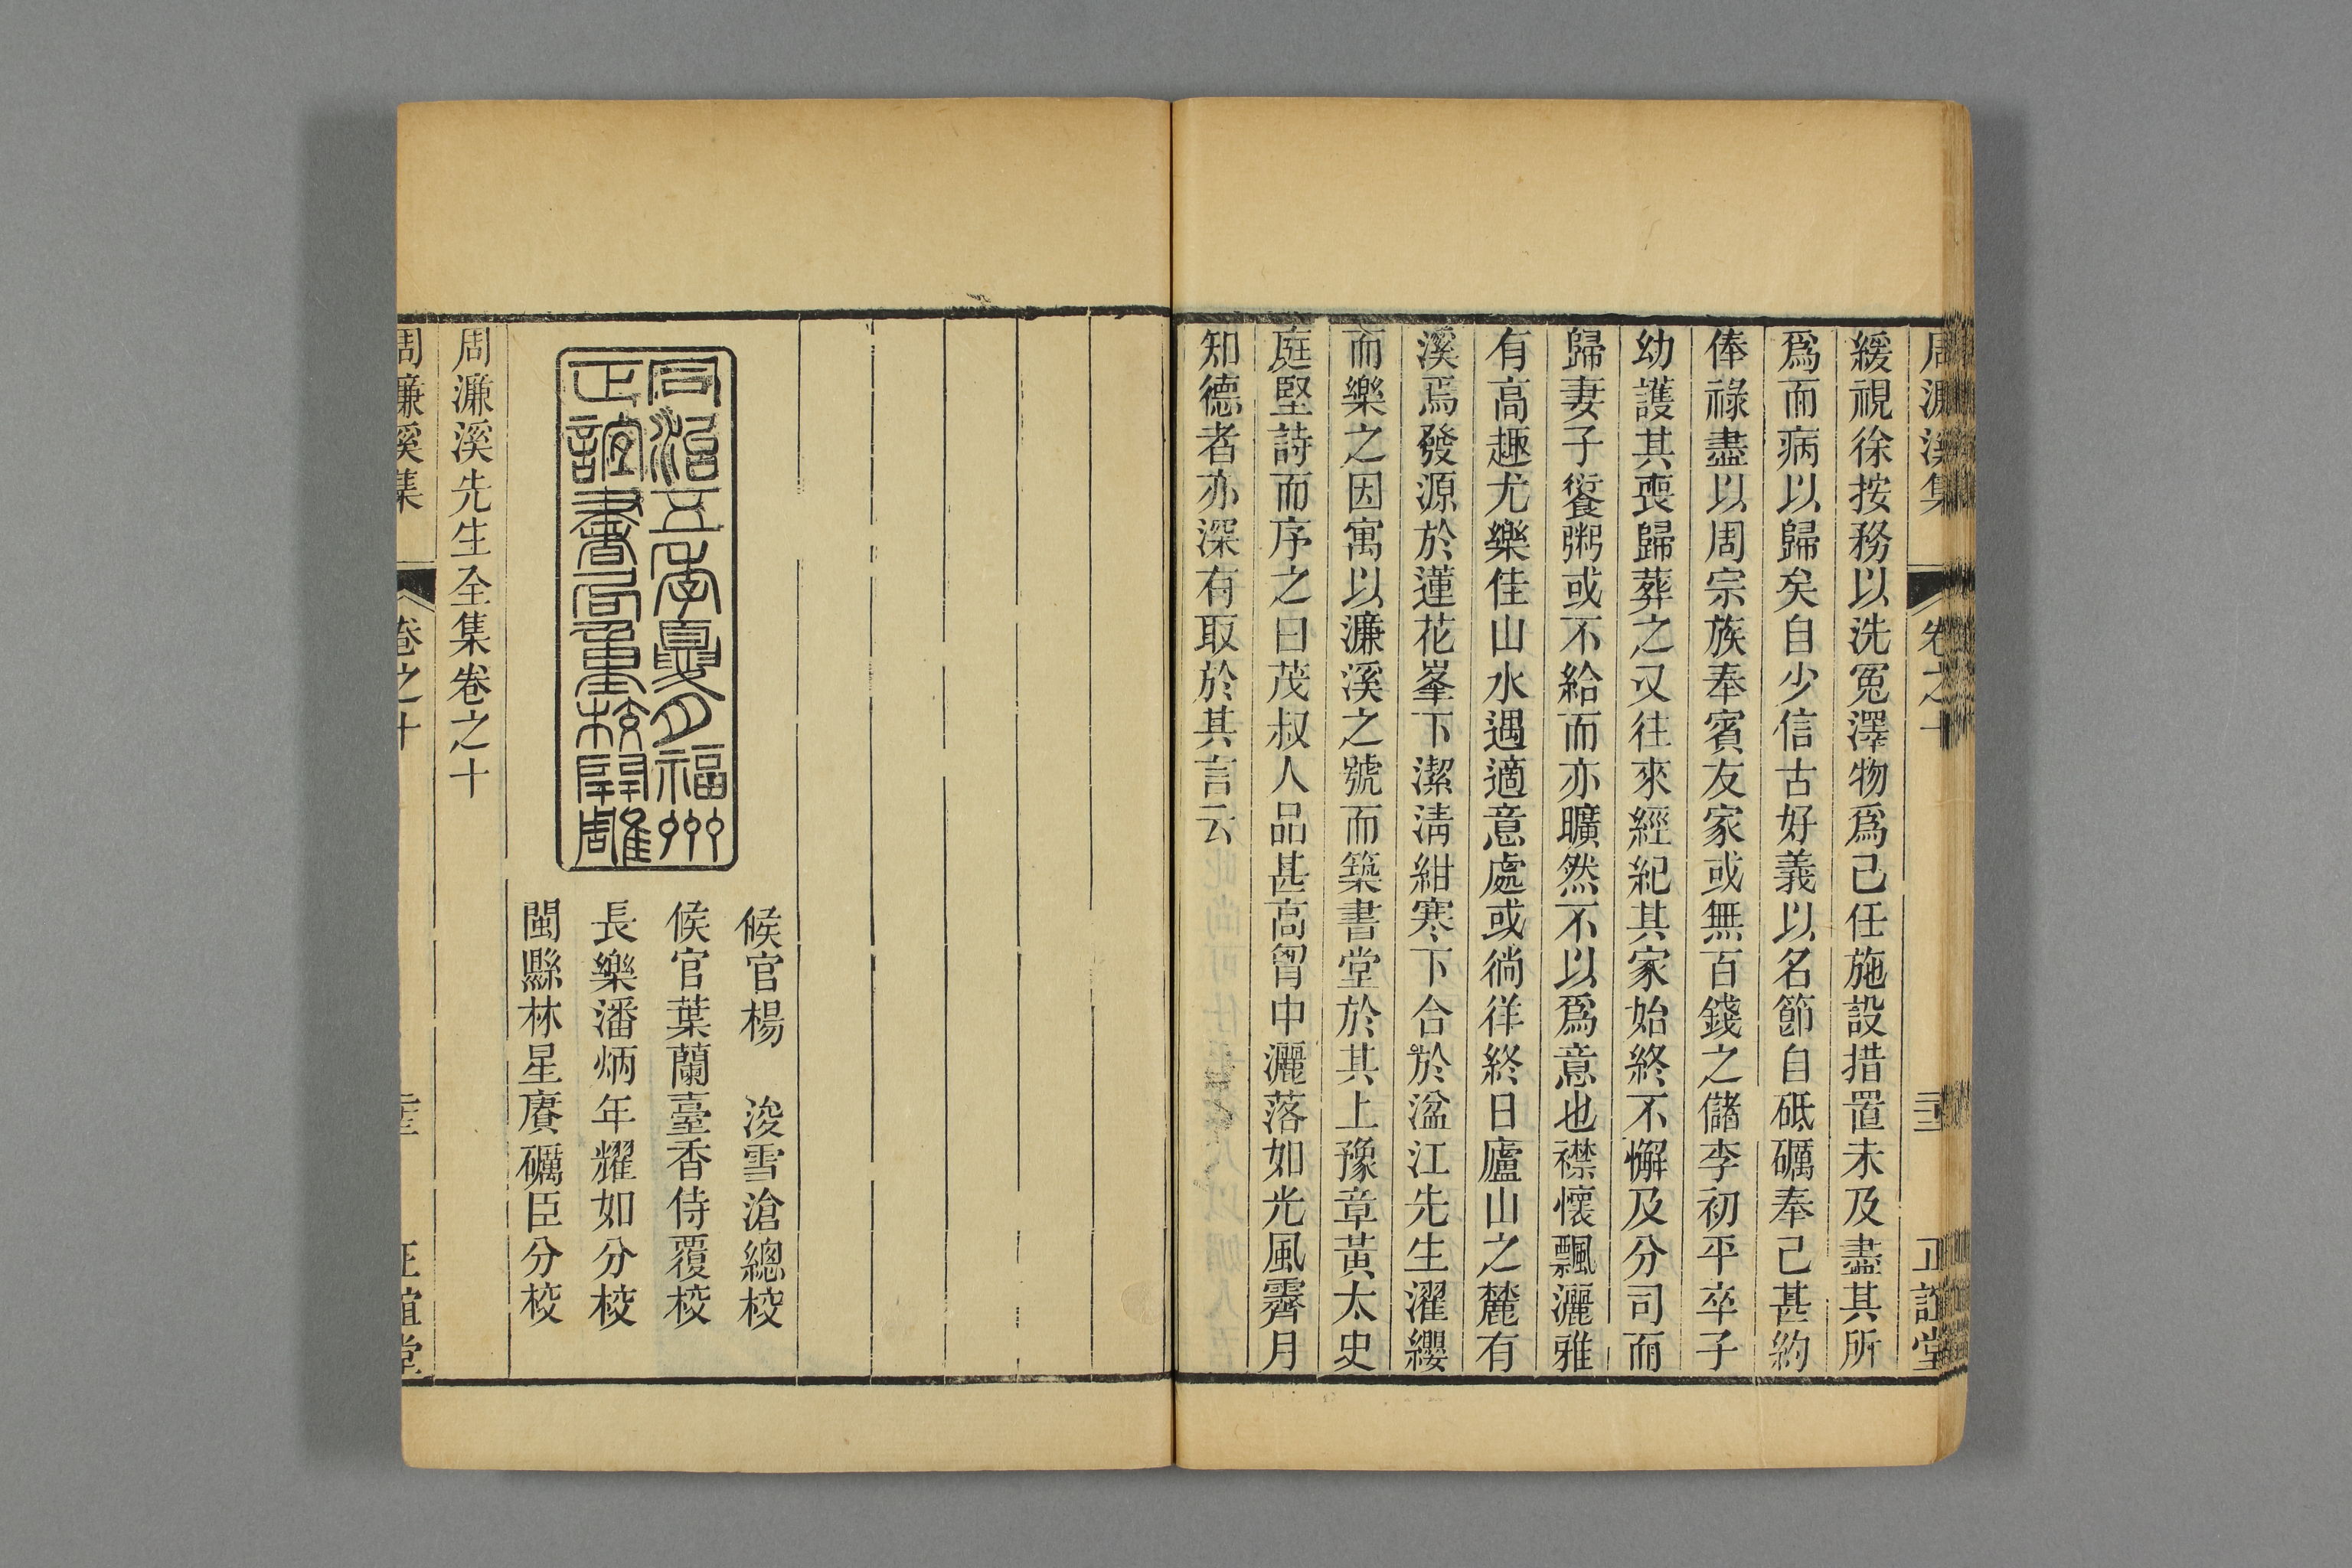 周濂溪集 卷之十 正誼堂
緩視徐按務以洗冤澤物爲己任施設措置未及盡其所
爲而病以歸矣自少信古好義以名節自砥礪奉己甚約
俸祿盡以周宗族奉賓友家或無百錢之儲李初平卒子
幼護其喪歸葬之又往來經紀其家始終不懈及分司而
歸妻子饘粥或不給而亦曠然不以爲意也襟懷飄灑雅
有高趣尤樂佳山水遇適意處或徜徉終日廬山之麓有
溪焉發源於蓮花峯下潔淸紺寒下合於湓江先生濯纓
而樂之因寓以濂溪之號而築書堂於其上豫章黃太史
庭堅詩而序之曰茂叔人品甚高胷中灑落如光風霽月
知德者亦深有取於其言云
候官楊 浚雪滄總校
候官葉蘭臺香侍覆校
長樂潘炳年耀如分校
閩縣林星賡礪臣分校
同治五年夏月福州
正誼書局重校開雕
周濂溪先生全集卷之十
周濂溪集 卷之十 正誼堂